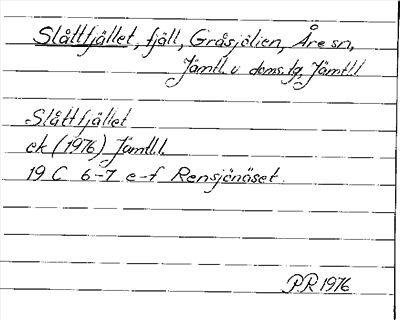 Slåttfjället, fjäll, Gråsjölien, Åre sn,
Jämtl. v doms. tg, Jämtl.l
Slåttfjället
ek (1976) Jämtl.l.
19 C 6-7 e-f Rensjönäset.
P.R 1976